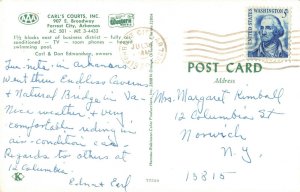 CARL'S COURTS, INC.
907 E. Broadway
Forrest City, Arkansas
AC 501 - ME 3-4433
1½ blocks east of business district - fully air
conditioned - TV - room phones - heated
swimming pool.
Carl & Don Edmondson, owners
AAA
UNITED STATES
POST CARD
Address
In nite in Arkansas
Went thru Endless Caverns
& Natural Bridge in Va.
Nice weather & very
comfortably riding in
air-condition car.
Regards to others at
12 Columbia.
Edna & Earl
Mrs. Margaret Kimball
12 Columbia St
Norwich
N.Y.
13815
K